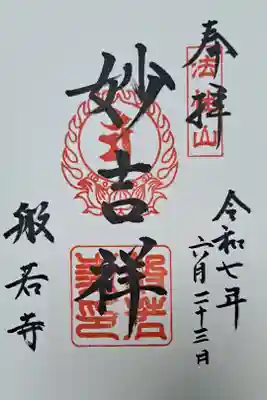 奉拝
法性山
令和七年
六月二十三日
妙吉祥
般若寺